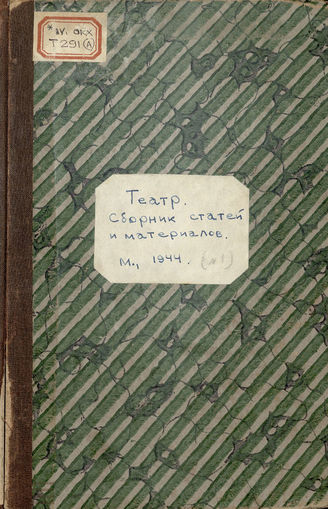 * IV. ОКХ
T 291 (A)
Театр.
Сборник статей
и материалов.
М., 1944. (№1)